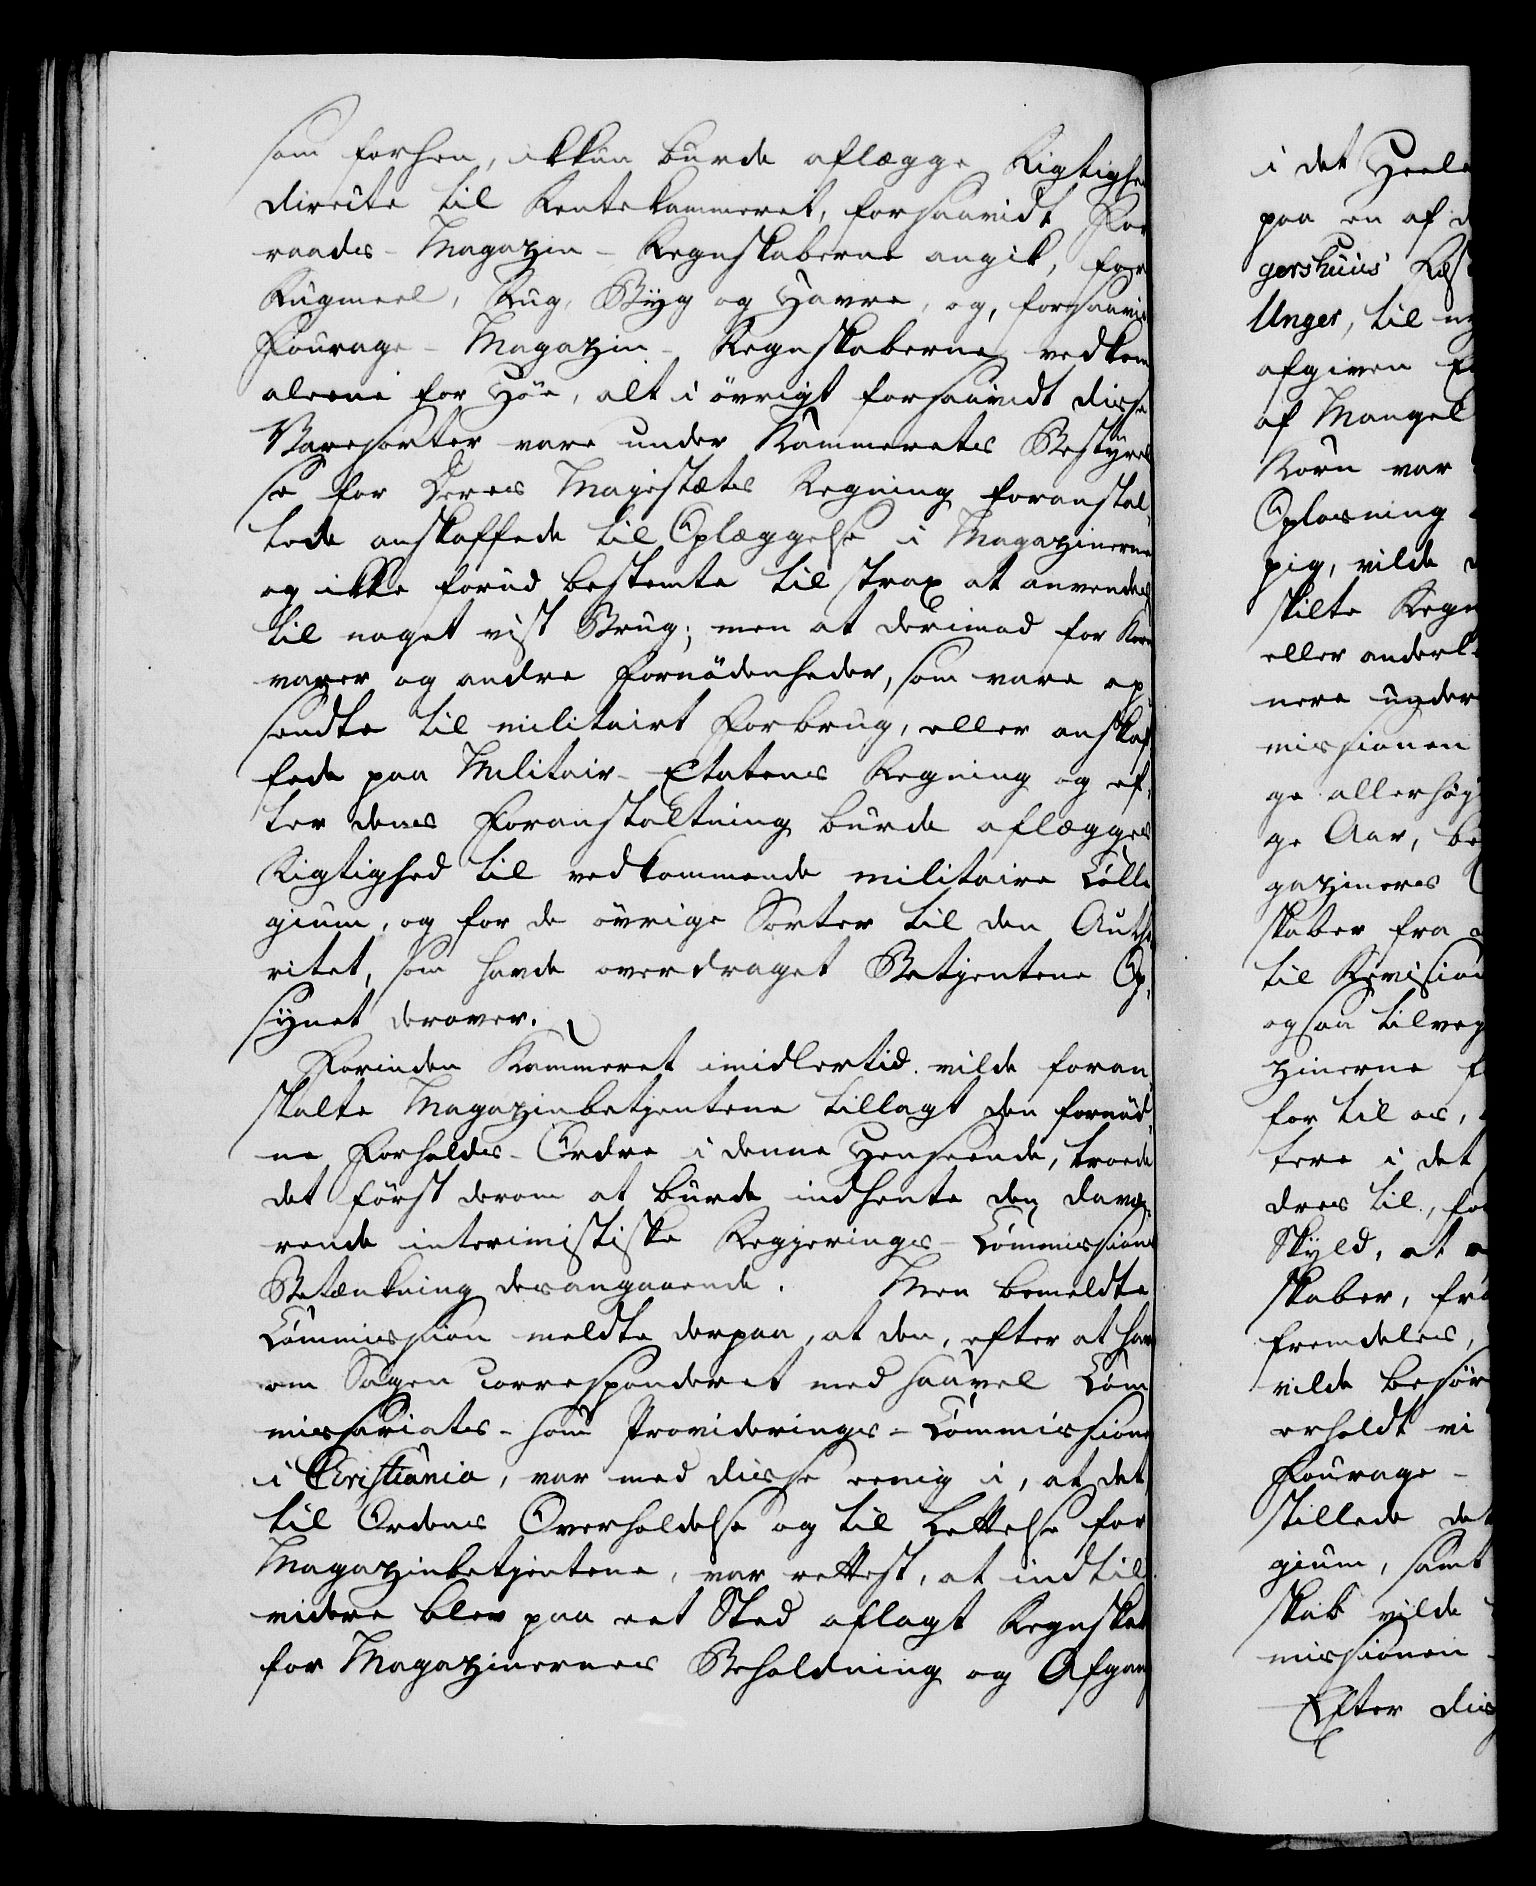 som forhen, ikkun burde aflægge Rigtighed
directe til Rentekammeret, forsaavidt For
raads- Magazin- Regnskaberne angik, for
Rugmeel, Rug, Byg og Havre, og, forsaavidt
Fourage- Magazin- Regnskaberne vedkom
alene for Høe, alt i øvrigt forsaavidt disse
Varesorter vare under Kammerets Bestyrel
se for Deres Majestæts Regning foranstal-
tede anskaffede til Oplæggelse i Magazinerne
og ikke forud bestemte til strax at anvendes
til noget vist Brug; men at derimod for Korn
varer og andre Fornødenheder, som vare op-
sendte til militairt Forbrug, eller anskaf
fede paa Militair- Etatens Regning og ef-
ter dens Foranstaltning burde aflægges
Rigtighed til vedkommende militaire Colle
gium, og for de øvrige Sorter til den Autho
ritet, som havde overdraget Betjentene Op-
synet derover.
Forinden Kammeret imidlertid vilde foran-
stalte Magazinbetjentene tillagt den fornød-
ne Forholds- Ordre i denne Henseende, troede
det først derom at burde indhente den davæ-
rende interimistiske Regjerings- Commissions
Betænkning desangaaende. Men bemeldte
Commission meldte derpaa, at den, efter at have
om Sagen correspondert med saavel Com
missariats- som Providerings- Commissionen
i Christiania, var med disse eenig i, at det
til Ordens Overholdelse og til Lettelse for
Magazinbetjentene, var rettest, at indtil
videre blev paa eet Sted aflagt Regnskab
for Magazinernes Beholdning og Afgang
i det Heele
paa en af
gershuus
Unger, til
afgiven
af Mangel
Korn var
Oplosning
pig, vilde
skilte Regn
eller anderl
nere under
missionen
ge allerhøi
ge Aar, be
gazineres
skaber fra
til Revision
ogsaa tilveg
zinerne
for til os,
tere i det
dres til, for
Skyld, at
skaber, fra
fremdeles,
vilde besør
erholdt vi
Fourage-
stillede det
gium, samt
skab vilde
missionen
Efter dis